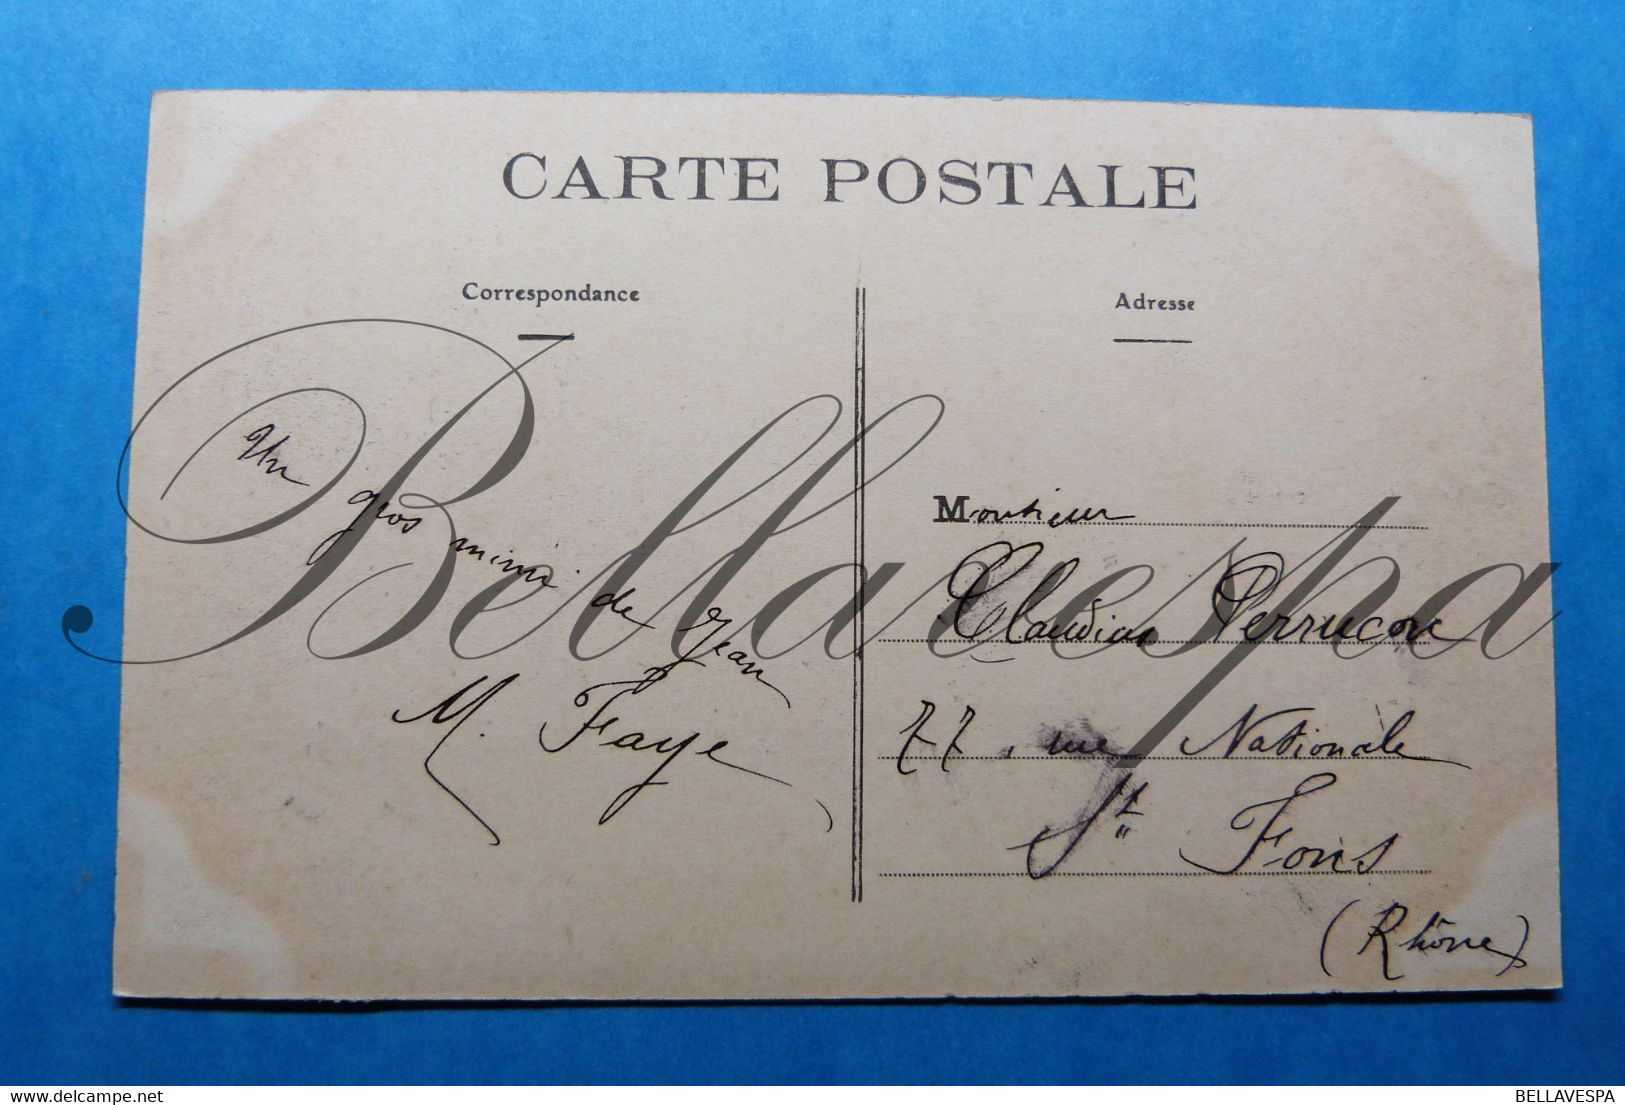 CARTE POSTALE
Correspondance
Adresse
Un gros mimi de Jean
M. Faye
Monsieur
Claudius Perrucon
77, rue Nationale
St Fons
(Rhône)
Bellavespa
delcampe.net
BELLAVESPA